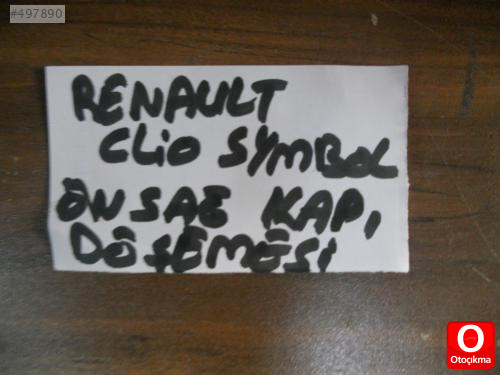 #497890
RENAULT
CLİO SYMBOL
ÖN SAĞ KAPI
DÖŞEMESİ
O
Otoçıkma